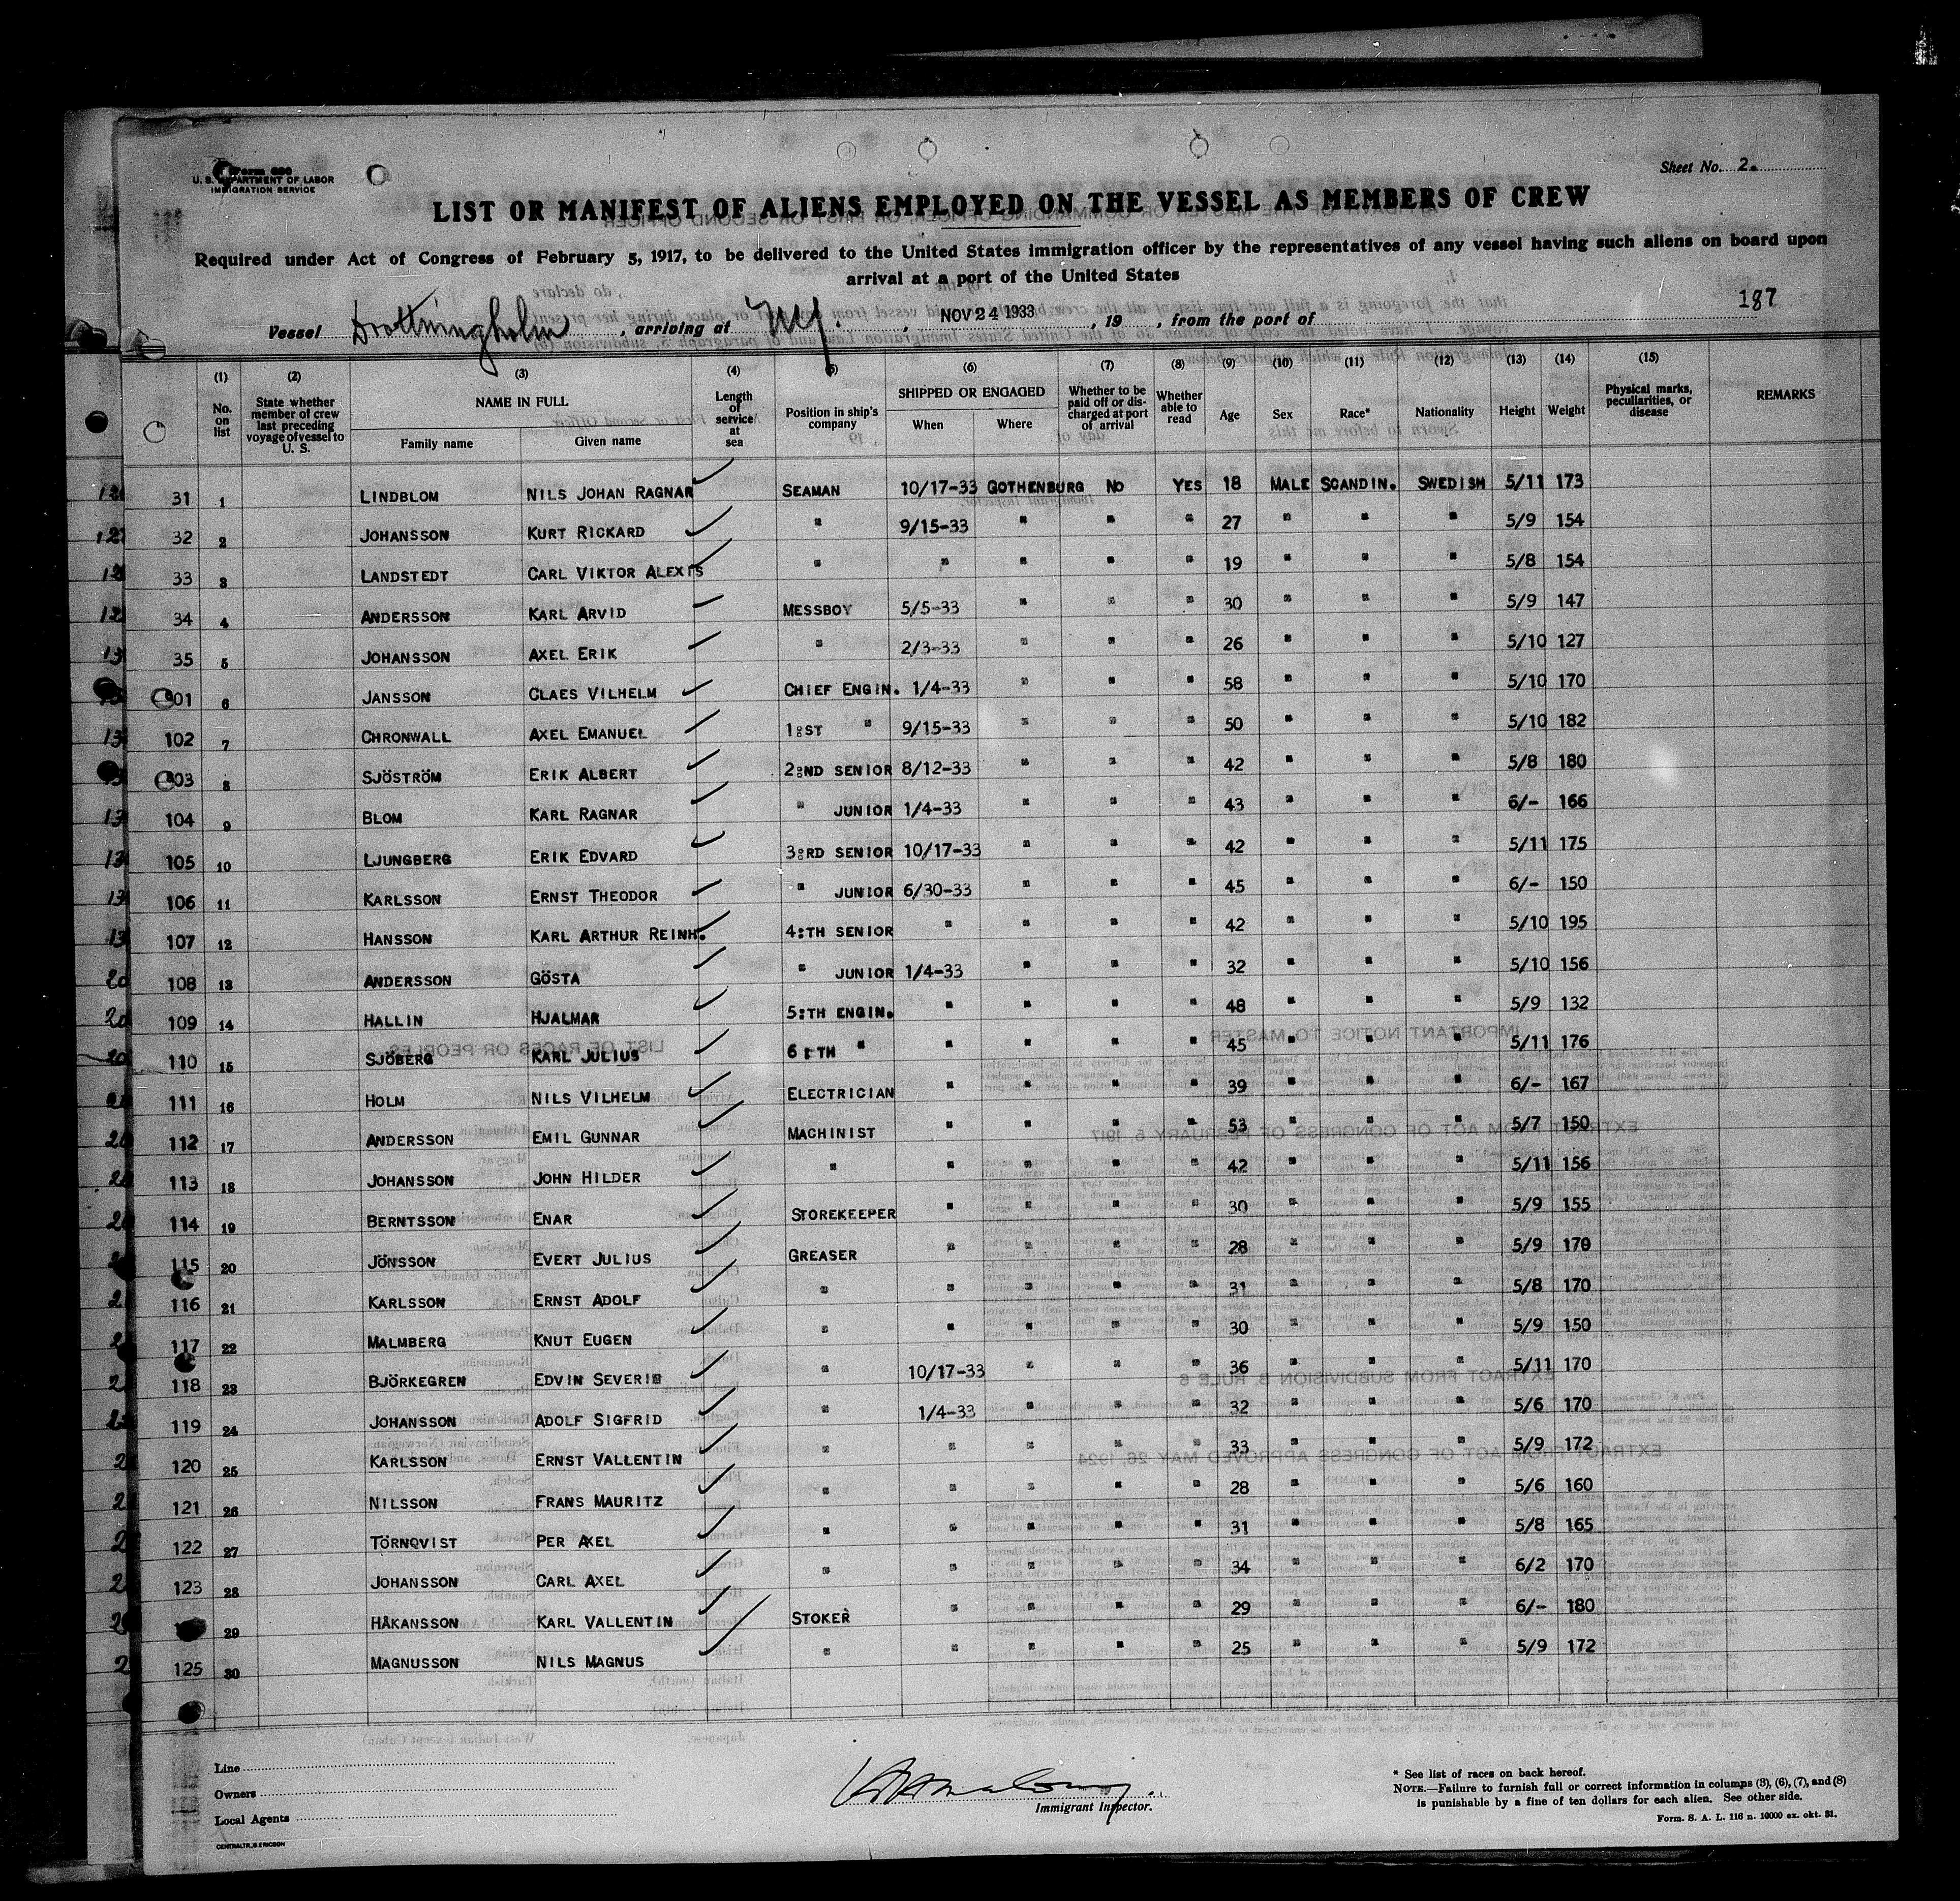 Form 680
U. S. DEPARTMENT OF LABOR
IMMIGRATION SERVICE
Sheet No. 2.
LIST OR MANIFEST OF ALIENS EMPLOYED ON THE VESSEL AS MEMBERS OF CREW
Required under Act of Congress of February 5, 1917, to be delivered to the United States immigration officer by the representatives of any vessel having such aliens on board upon
arrival at a port of the United States
187
Vessel Drottningholm, arriving at NY., NOV 24 1933, 19 , from the port of
(1) No. on list (2) State whether member of crew last preceding voyage of vessel to U. S. (3) NAME IN FULL Family name Given name (4) Length of service at sea (5) Position in ship's company (6) SHIPPED OR ENGAGED When Where (7) Whether to be paid off or discharged at port of arrival (8) Whether able to read (9) Age (10) Sex (11) Race* (12) Nationality (13) Height (14) Weight (15) Physical marks, peculiarities, or disease REMARKS
31 1 LINDBLOM NILS JOHAN RAGNAR SEAMAN 10/17-33 GOTHENBURG NO YES 18 MALE SCANDIN. SWEDISH 5/11 173
32 2 JOHANSSON KURT RICKARD " 9/15-33 " " " 27 " " " 5/9 154
33 3 LANDSTEDT CARL VIKTOR ALEXIS " " " " " 19 " " " 5/8 154
34 4 ANDERSSON KARL ARVID MESSBOY 5/5-33 " " " 30 " " " 5/9 147
35 5 JOHANSSON AXEL ERIK " 2/3-33 " " " 26 " " " 5/10 127
01 6 JANSSON CLAES VILHELM CHIEF ENGIN. 1/4-33 " " " 58 " " " 5/10 170
102 7 CHRONWALL AXEL EMANUEL 1:ST " 9/15-33 " " " 50 " " " 5/10 182
03 8 SJÖSTRÖM ERIK ALBERT 2:ND SENIOR 8/12-33 " " " 42 " " " 5/8 180
104 9 BLOM KARL RAGNAR " JUNIOR 1/4-33 " " " 43 " " " 6/- 166
105 10 LJUNGBERG ERIK EDVARD 3:RD SENIOR 10/17-33 " " " 42 " " " 5/11 175
106 11 KARLSSON ERNST THEODOR " JUNIOR 6/30-33 " " " 45 " " " 6/- 150
107 12 HANSSON KARL ARTHUR REINH. 4:TH SENIOR " " " " 42 " " " 5/10 195
108 13 ANDERSSON GÖSTA " JUNIOR 1/4-33 " " " 32 " " " 5/10 156
109 14 HALLIN HJALMAR 5:TH ENGIN. " " " " 48 " " " 5/9 132
110 15 SJÖBERG KARL JULIUS 6:TH " " " " " 45 " " " 5/11 176
111 16 HOLM NILS VILHELM ELECTRICIAN " " " " 39 " " " 6/- 167
112 17 ANDERSSON EMIL GUNNAR MACHINIST " " " " 53 " " " 5/7 150
113 18 JOHANSSON JOHN HILDER " " " " " 42 " " " 5/11 156
114 19 BERNTSSON ENAR STOREKEEPER " " " " 30 " " " 5/9 155
115 20 JÖNSSON EVERT JULIUS GREASER " " " " 28 " " " 5/9 170
116 21 KARLSSON ERNST ADOLF " " " " " 31 " " " 5/8 170
117 22 MALMBERG KNUT EUGEN " " " " " 30 " " " 5/9 150
118 23 BJÖRKEGREN EDVIN SEVERIN " 10/17-33 " " " 36 " " " 5/11 170
119 24 JOHANSSON ADOLF SIGFRID " 1/4-33 " " " 32 " " " 5/6 170
120 25 KARLSSON ERNST VALLENTIN " " " " " 33 " " " 5/9 172
121 26 NILSSON FRANS MAURITZ " " " " " 28 " " " 5/6 160
122 27 TÖRNQVIST PER AXEL " " " " " 31 " " " 5/8 165
123 28 JOHANSSON CARL AXEL " " " " " 34 " " " 6/2 170
29 HÅKANSSON KARL VALLENTIN STOKER " " " " 29 " " " 6/- 180
125 30 MAGNUSSON NILS MAGNUS " " " " " 25 " " " 5/9 172
Line
Owners
Local Agents
CENTRALTR. S. ERICSON
Immigrant Inspector.
* See list of races on back hereof.
NOTE.—Failure to furnish full or correct information in columns (3), (6), (7), and (8)
is punishable by a fine of ten dollars for each alien. See other side.
Form. S. A. L. 116 n. 10000 ex. okt. 31.